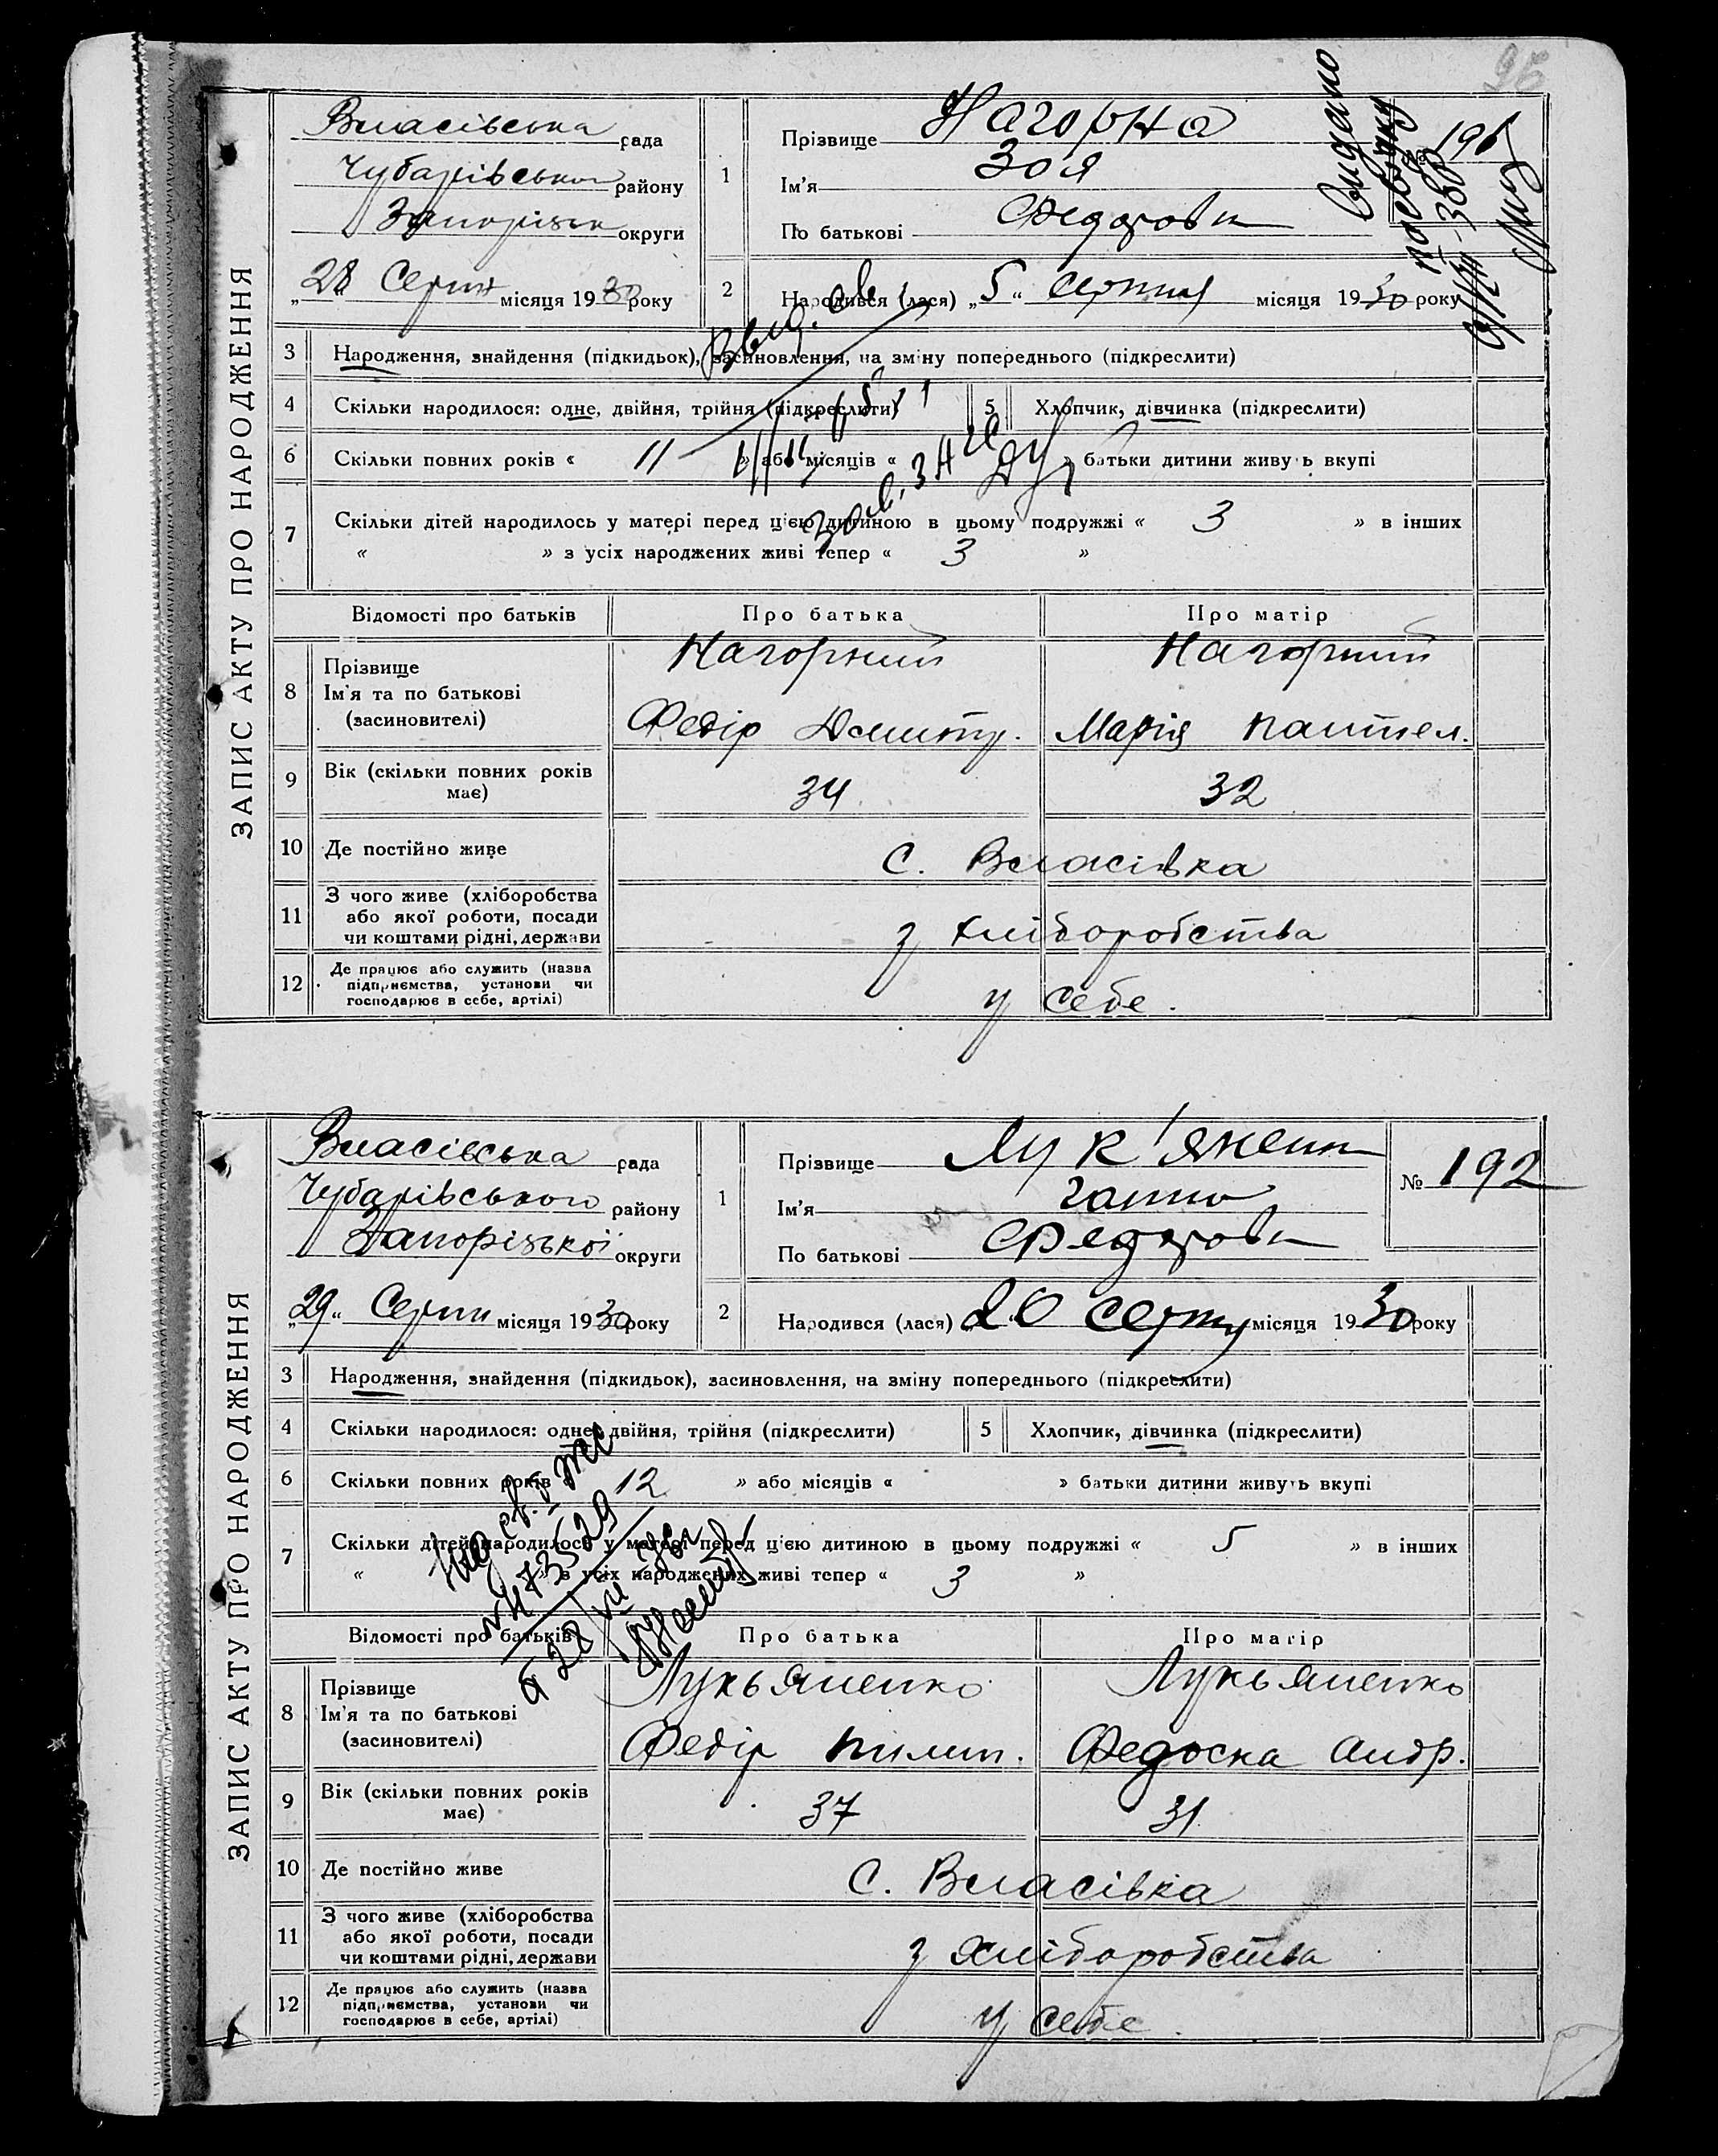 96
ЗАПИС АКТУ ПРО НАРОДЖЕННЯ
Власівська рада
Чубарівського району
Запорізьк округи
„28“ Серпня місяця 1930 року
1
Прізвище Нагорна
Ім'я Зоя
По батькові Федоровн
№ 191
Видано
посвідку
2
Народився (лася) „5“ серпня місяця 1930 року
3 Народження, знайдення (підкидьок), засиновлення, на зміну попереднього (підкреслити)
4 Скільки народилося: одне, двійня, трійня (підкреслити)
5 Хлопчик, дівчинка (підкреслити)
6 Скільки повних років « 11 » або місяців « » батьки дитини живуть вкупі
7 Скільки дітей народилось у матері перед цією дитиною в цьому подружжі « 3 » в інших
« » з усіх народжених живі тепер « 3 »
Відомості про батьків Про батька Про матір
8 Прізвище
Ім'я та по батькові
(засиновителі)
Нагорний
Федір Дмитр.
Нагорний
Марія Пантел.
9 Вік (скільки повних років
має)
34 32
10 Де постійно живе с. Власівка
11 З чого живе (хліборобства
або якої роботи, посади
чи коштами рідні, держави
з хліборобства
12 Де працює або служить (назва
підприємства, установи чи
господарює в себе, артілі)
у себе.
ЗАПИС АКТУ ПРО НАРОДЖЕННЯ
Власівська рада
Чубарівського району
Запорізької округи
„29“ Серпн місяця 1930 року
1
Прізвище Лук'яненк
Ім'я Ганна
По батькові Федоровн
№ 192
2
Народився (лася) 20 серпня місяця 1930 року
3 Народження, знайдення (підкидьок), засиновлення, на зміну попереднього (підкреслити)
4 Скільки народилося: одне, двійня, трійня (підкреслити)
5 Хлопчик, дівчинка (підкреслити)
6 Скільки повних років « 12 » або місяців « » батьки дитини живуть вкупі
7 Скільки дітей народилось у матері перед цією дитиною в цьому подружжі « 5 » в інших
« » з усіх народжених живі тепер « 3 »
№ 473529
Відомості про батьків Про батька Про матір
8 Прізвище
Ім'я та по батькові
(засиновителі)
Лукьяненко
Федір Пилип.
Лукьяненко
Федоска Андр.
9 Вік (скільки повних років
має)
37 31
10 Де постійно живе с. Власівка
11 З чого живе (хліборобства
або якої роботи, посади
чи коштами рідні, держави
з хліборобства
12 Де працює або служить (назва
підприємства, установи чи
господарює в себе, артілі)
у себе.